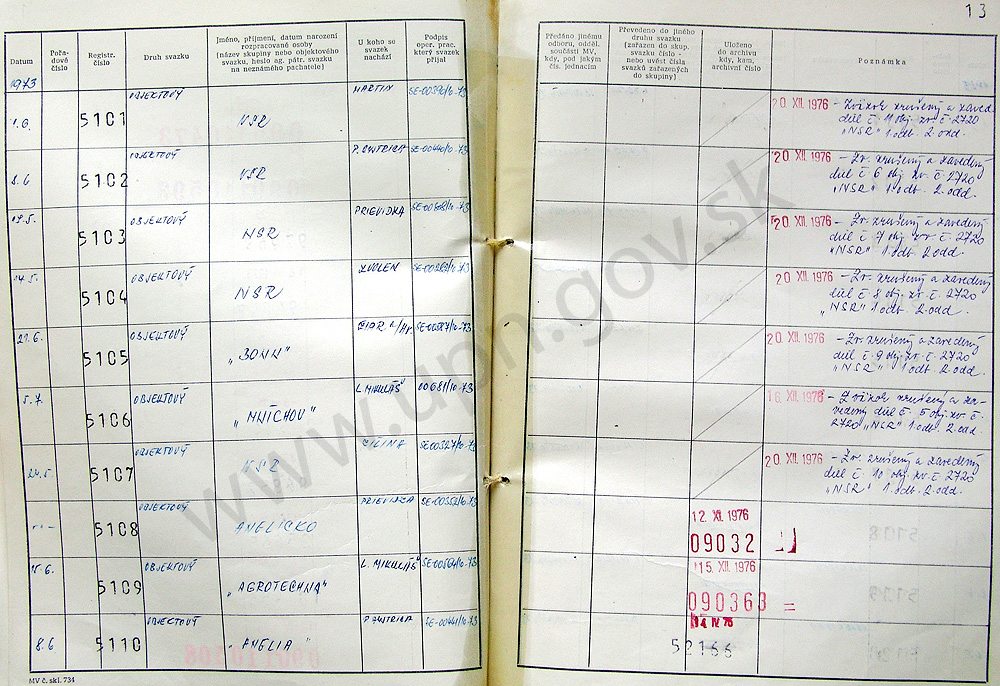 13
Datum
Pořadové číslo
Registr. číslo
Druh svazku
Jméno, příjmení, datum narození rozpracované osoby
(název skupiny nebo objektového svazku, heslo ag. pátr. svazku na neznámého pachatele)
U koho se svazek nachází
Podpis oper. prac. který svazek přijal
Předáno jinému odboru, odděl. součásti MV, kdy, pod jakým čís. jednacím
Převedeno do jiného druhu svazku (zařazen do skup. svazku číslo - nebo uvést čísla svazků zařazených do skupiny)
Uloženo do archivu kdy, kam, archivní číslo
Poznámka
1973
1.6. 5101 OBJEKTOVÝ NSR MARTIN
20 XII. 1976 - Zväzok zrušený a zaved.
diel č. 11 obj. zv. č. 2720
„NSR" 1.odt. 2.odd.
8.6 5102 OBJEKTOVÝ NSR P. BYSTRICA SE-00440/10-73
20 XII. 1976 - Zv. zrušený a zavedený
diel č. 6 obj. zv. č. 2720
„NSR" 1.odt. 2.odd.
17.5. 5103 OBJEKTOVÝ NSR PRIEVIDZA
20 XII. 1976 - Zv. zrušený a zavedený
diel č. 7 obj. zv. č. 2720
„NSR" 1.odt. 2.odd.
14.5. 5104 OBJEKTOVÝ NSR ZVOLEN
20 XII. 1976 - Zv. zrušený a zavedený
diel č. 8 obj. zv. č. 2720
„NSR" 1.odt. 2.odd.
21.6. 5105 OBJEKTOVÝ „BONN"
20 XII. 1976 - Zv. zrušený a zavedený
diel č. 9 obj. zv. č. 2720
„NSR" 1.odt. 2.odd.
5.7. 5106 OBJEKTOVÝ „MNÍCHOV" L. MIKULÁŠ 00681/10-73
16 XII. 1976 - Zväzok zrušený a za-
vedený diel č. 5 obj. zv. č.
2720 „NSR" 1.odt. 2.odd.
24.5. 5107 OBJEKTOVÝ NSR ŽILINA SE-00327/10-73
20 XII. 1976 - Zv. zrušený a zavedený
diel č. 10 obj. zv. č. 2720
„NSR" 1.odt. 2.odd.
-"- 5108 OBJEKTOVÝ ANGLICKO PRIEVIDZA
12. XI. 1976
09032
15. 6. 5109 OBJEKTOVÝ „AGROTECHNA" L. MIKULÁŠ
15. XII. 1976
090363 =
8.6 5110 OBJEKTOVÝ „ANGLIA" P. BYSTRICA SE-00441/10-73
52166
MV č. skl. 734
www.upn.gov.sk